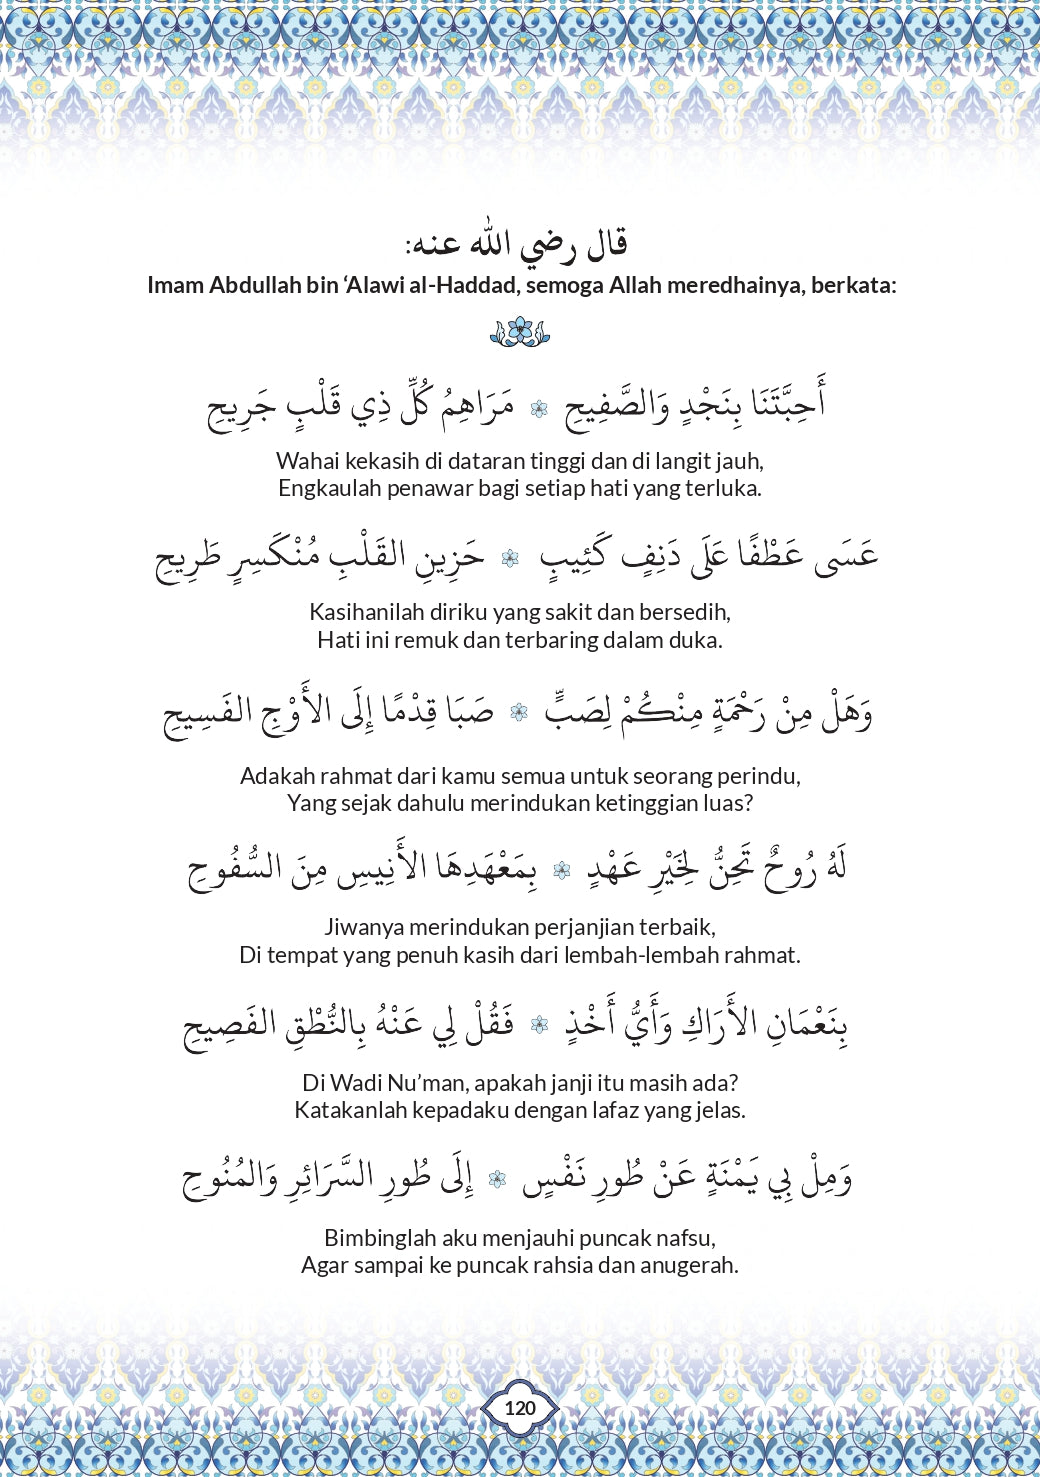 قال رضي الله عنه:
Imam Abdullah bin ‘Alawi al-Haddad, semoga Allah meredhainya, berkata:
أَحِبَّتَنَا بِنَجْدٍ وَالصَّفِيحِ مَرَاهِمُ كُلِّ ذِي قَلْبٍ جَرِيحِ
Wahai kekasih di dataran tinggi dan di langit jauh,
Engkaulah penawar bagi setiap hati yang terluka.
عَسَى عَطْفًا عَلَى دَنِفٍ كَئِيبٍ حَزِينِ القَلْبِ مُنْكَسِرٍ طَرِيحِ
Kasihanilah diriku yang sakit dan bersedih,
Hati ini remuk dan terbaring dalam duka.
وَهَلْ مِنْ رَحْمَةٍ مِنْكُمْ لِصَبٍّ صَبَا قِدْمًا إِلَى الأَوْجِ الفَسِيحِ
Adakah rahmat dari kamu semua untuk seorang perindu,
Yang sejak dahulu merindukan ketinggian luas?
لَهُ رُوحٌ تَحِنُّ لِخَيْرِ عَهْدٍ بِمَعْهَدِهَا الأَنِيسِ مِنَ السُّفُوحِ
Jiwanya merindukan perjanjian terbaik,
Di tempat yang penuh kasih dari lembah-lembah rahmat.
بِنَعْمَانِ الأَرَاكِ وَأَيُّ أَخْذٍ فَقُلْ لِي عَنْهُ بِالنُّطْقِ الفَصِيحِ
Di Wadi Nu’man, apakah janji itu masih ada?
Katakanlah kepadaku dengan lafaz yang jelas.
وَمِلْ بِي يَمْنَةٍ عَنْ طُورِ نَفْسٍ إِلَى طُورِ السَّرَائِرِ وَالمُنُوحِ
Bimbinglah aku menjauhi puncak nafsu,
Agar sampai ke puncak rahsia dan anugerah.
120